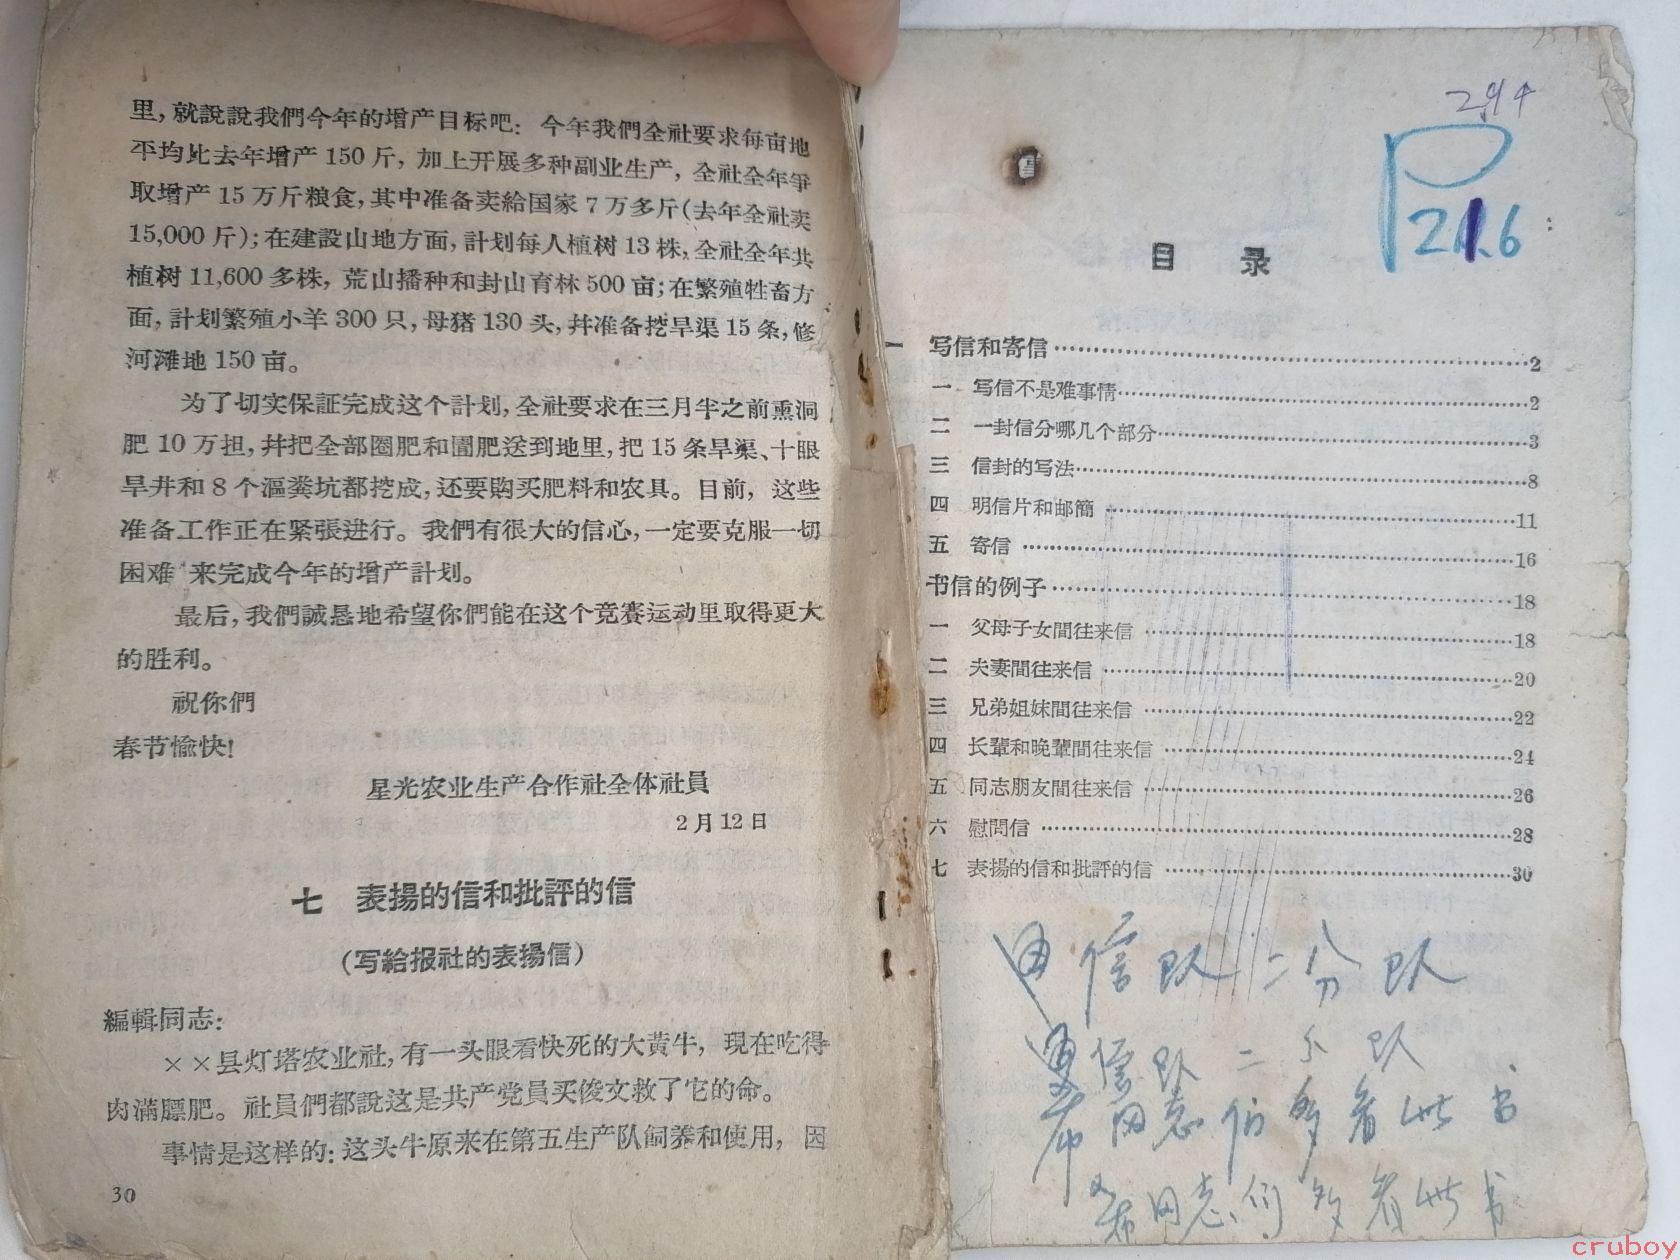 里，就說說我們今年的增产目标吧：今年我們全社要求每亩地
平均比去年增产150斤，加上开展多种副业生产，全社全年爭
取增产15万斤粮食，其中准备卖給国家7万多斤（去年全社卖
15,000斤）；在建設山地方面，計划每人植树13株，全社全年共
植树11,600多株，荒山播种和封山育林500亩；在繁殖牲畜方
面，計划繁殖小羊300只，母猪130头，幷准备挖旱渠15条，修
河滩地150亩。
为了切实保証完成这个計划，全社要求在三月半之前熏洞
肥10万担，幷把全部圈肥和圊肥送到地里，把15条旱渠、十眼
旱井和8个漚粪坑都挖成，还要購买肥料和农具。目前，这些
准备工作正在紧張进行。我們有很大的信心，一定要克服一切
困难 来完成今年的增产計划。
最后，我們誠恳地希望你們能在这个竞賽运动里取得更大
的胜利。
祝你們
春节愉快！
星光农业生产合作社全体社員
2月12日
七 表揚的信和批評的信
（写給报社的表揚信）
編輯同志：
××县灯塔农业社，有一头眼看快死的大黄牛，現在吃得
肉滿膘肥。社員們都說这是共产党員买俊文救了它的命。
事情是这样的：这头牛原来在第五生产队飼养和使用，因
30
294
P
21.6
目 录
一 写信和寄信……2
一 写信不是难事情……2
二 一封信分哪几个部分……3
三 信封的写法……8
四 明信片和邮簡……11
五 寄信……16
书信的例子……18
一 父母子女間往来信……18
二 夫妻間往来信……20
三 兄弟姐妹間往来信……22
四 长輩和晚輩間往来信……24
五 同志朋友間往来信……26
六 慰問信……28
七 表揚的信和批評的信……30
通信队二分队
通信队二分队
希同志们多看此书
希同志们多看此书
cruboy